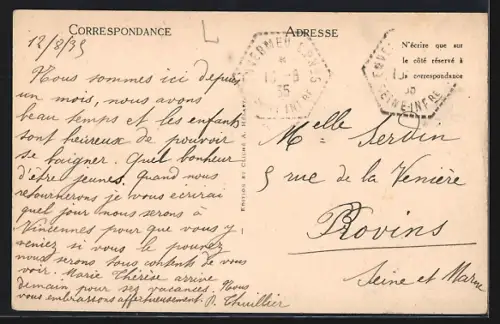 CORRESPONDANCE
ADRESSE
12/8/35
Nous sommes ici depuis
un mois, nous avons
beau temps et les enfants
sont heureux de pouvoir
se baigner. Quel bonheur
d'être jeunes. Quand nous
retournerons je vous écrirai
quel jour nous serons à
Vincennes pour que vous y
veniez si vous le pouvez
nous serons tous contents de vous
voir. Marie Thérèse arrive
demain pour ses vacances. Nous
vous embrassons affectueusement. P. Thuillier
N'écrire que sur
le côté réservé à
la correspondance
35
Melle Serdin
5 rue de la Venière
Provins
Seine et Marne